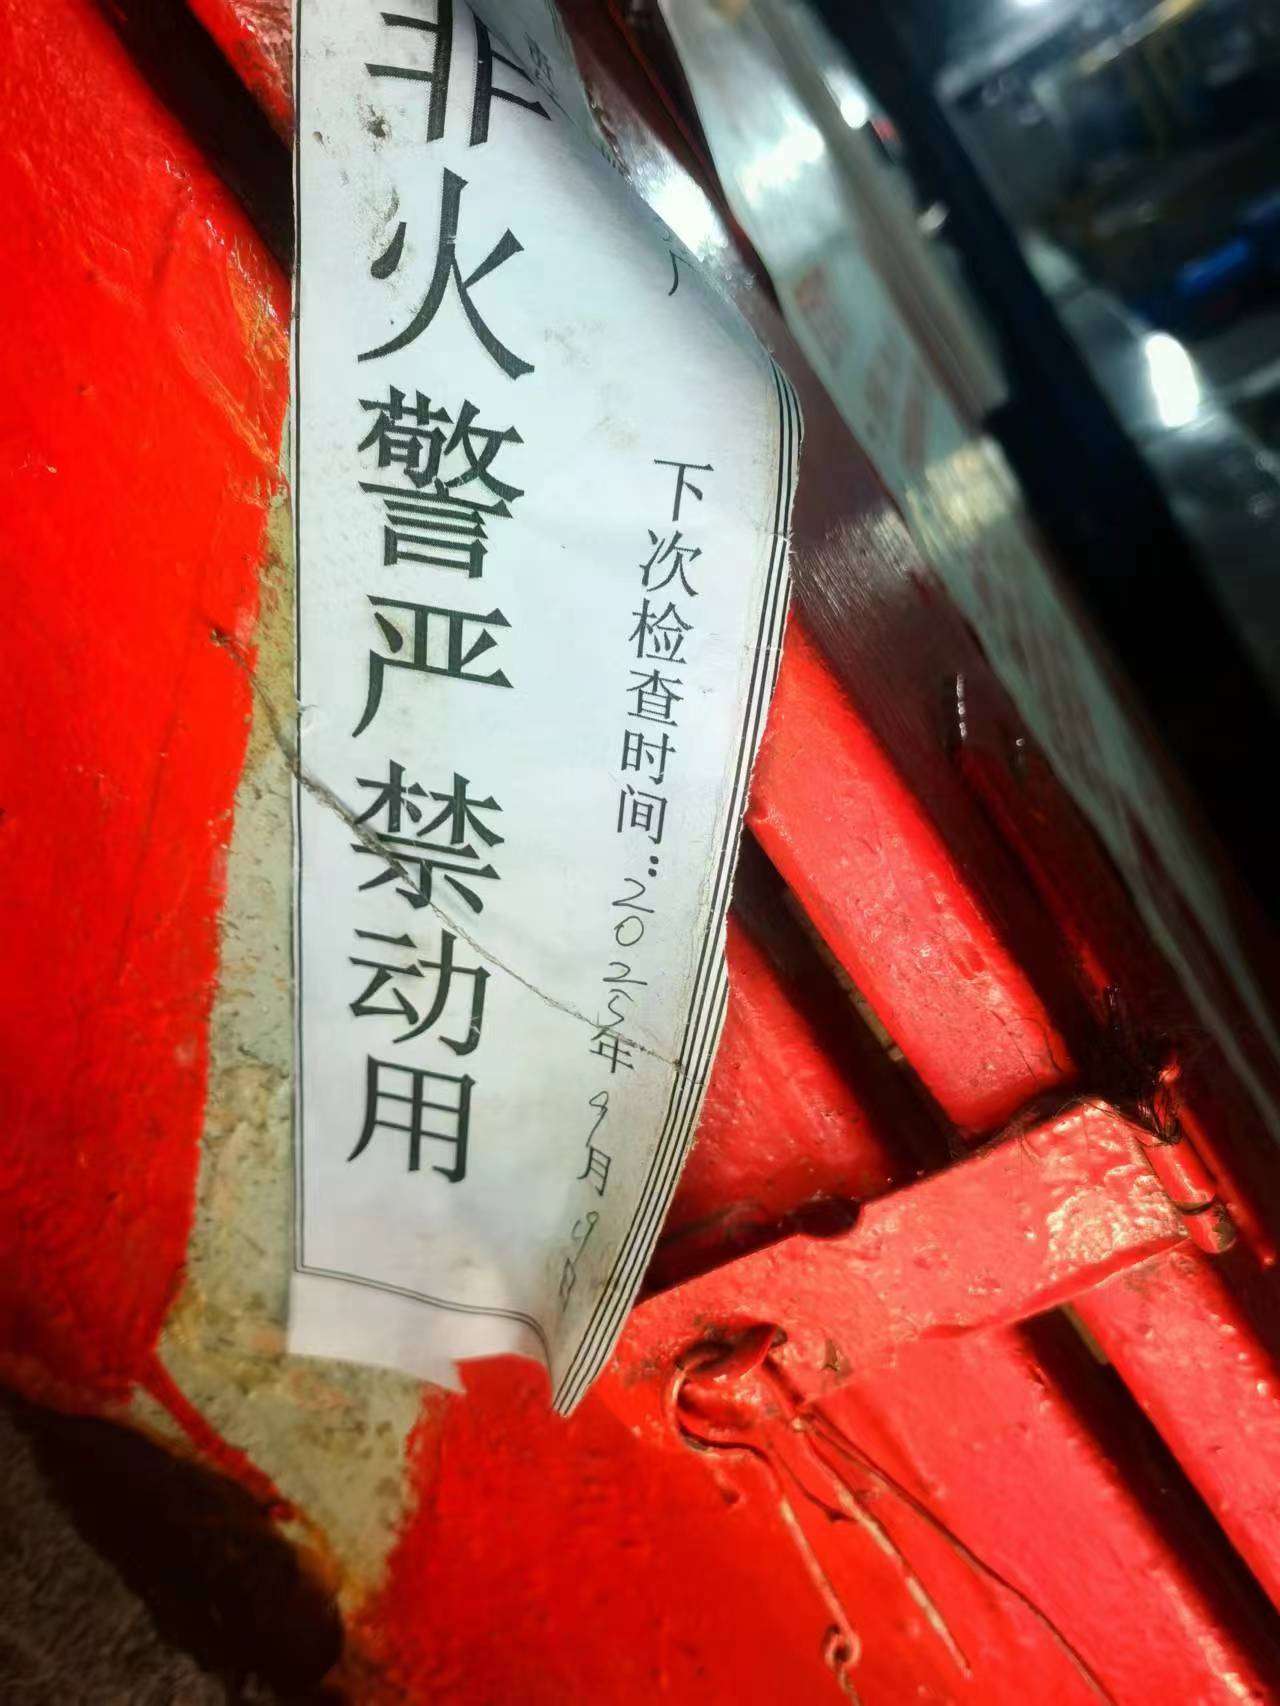 非火警严禁动用
下次检查时间：2025年9月9日